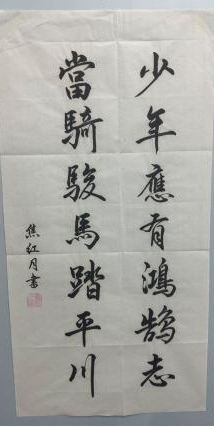 少年應有鴻鹄志
當騎駿馬踏平川
焦红月書